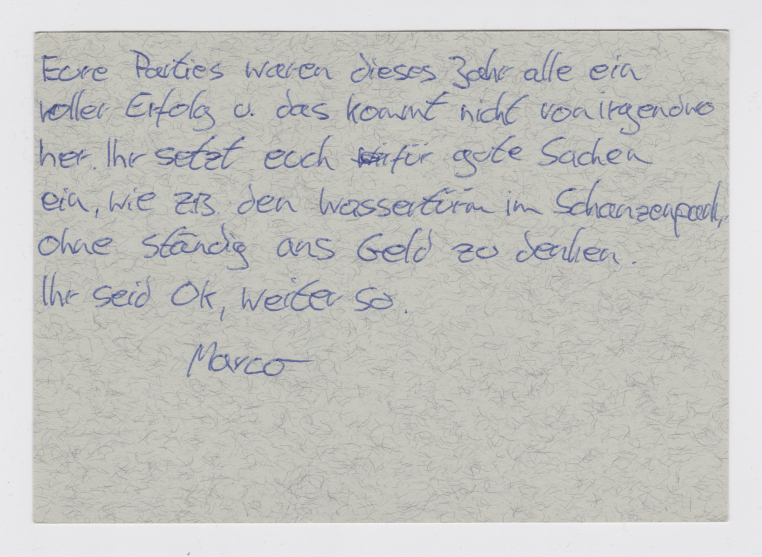 Eure Parties waren dieses Jahr alle ein
voller Erfolg u. das kommt nicht von irgendwo
her. Ihr setzt euch für gute Sachen
ein, wie z.B. den Wasserturm im Schanzenpark,
ohne ständig ans Geld zu denken.
Ihr seid OK, weiter so.
Marco